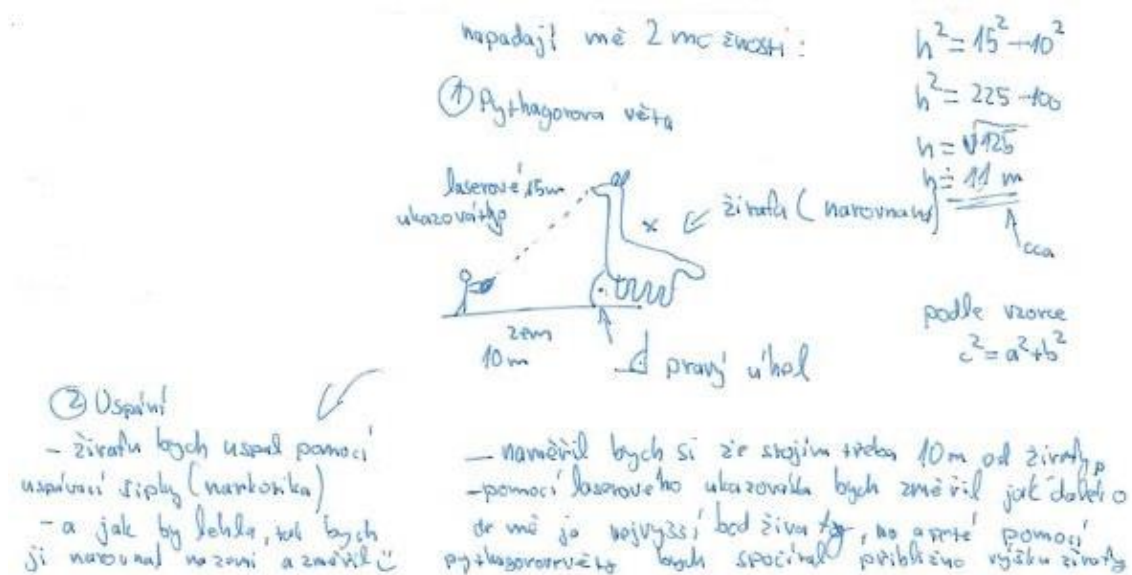 napadají mě 2 možnosti:
① Pythagorova věta
laserové 15m
ukazovátko
žirafa (narovnaná)
x
zem
10m
pravý úhel
h²=15²-10²
h²=225-100
h=√125
h≐11 m
cca
podle vzorce
c²=a²+b²
② Uspání
- žirafu bych uspal pomocí
uspávací šipky (narkotika)
- a jak by lehla, tak bych
ji narovnal na zemi a změřil
- naměřil bych si že stojím třeba 10m od žirafy,
- pomocí laserového ukazovátka bych změřil jak daleko
ode mě je nejvyšší bod žirafy, no a poté pomocí
pythagorovy věty bych spočítal přibližnou výšku žirafy